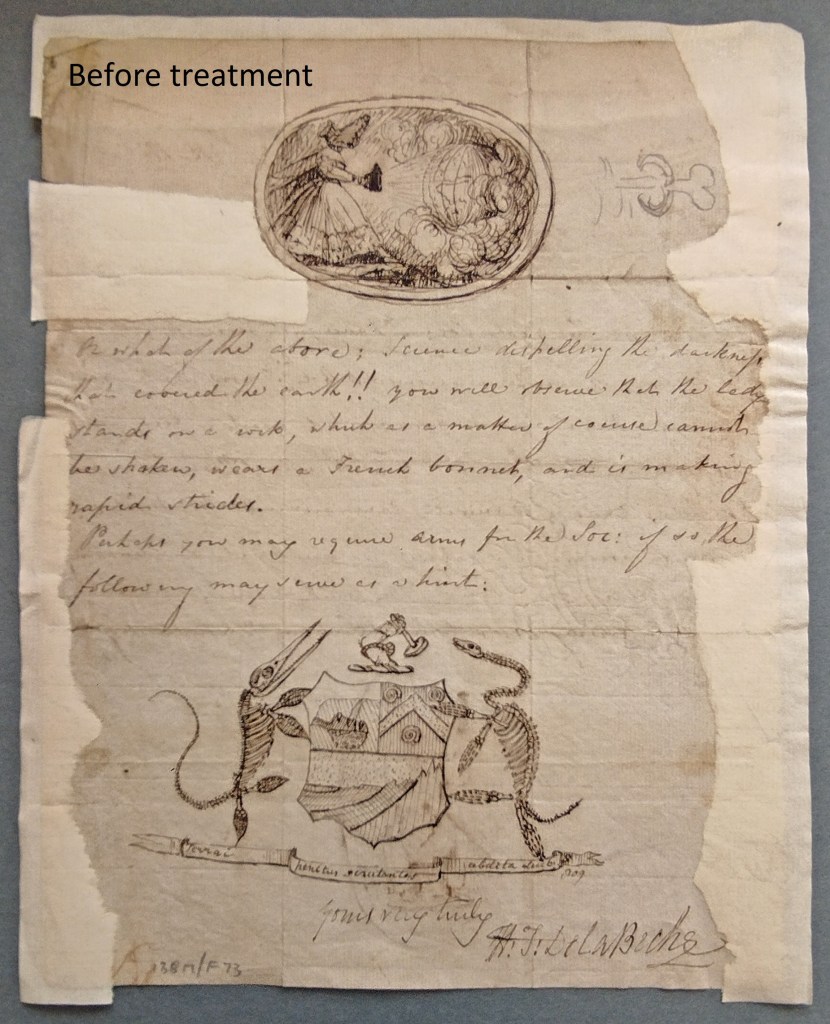 Before treatment
of the above; Science dispelling the darkness
that covered the earth!! you will observe that the lady
stands on a rock, which as a matter of course cannot
be shaken, wears a French bonnet, and is making
rapid strides.
Perhaps you may require arms for the Soc: if so, the
following may serve as a hint:
terrai
penetus scrutantes
abdita
Yours very truly
H. T. De la Beche
138M/F 73